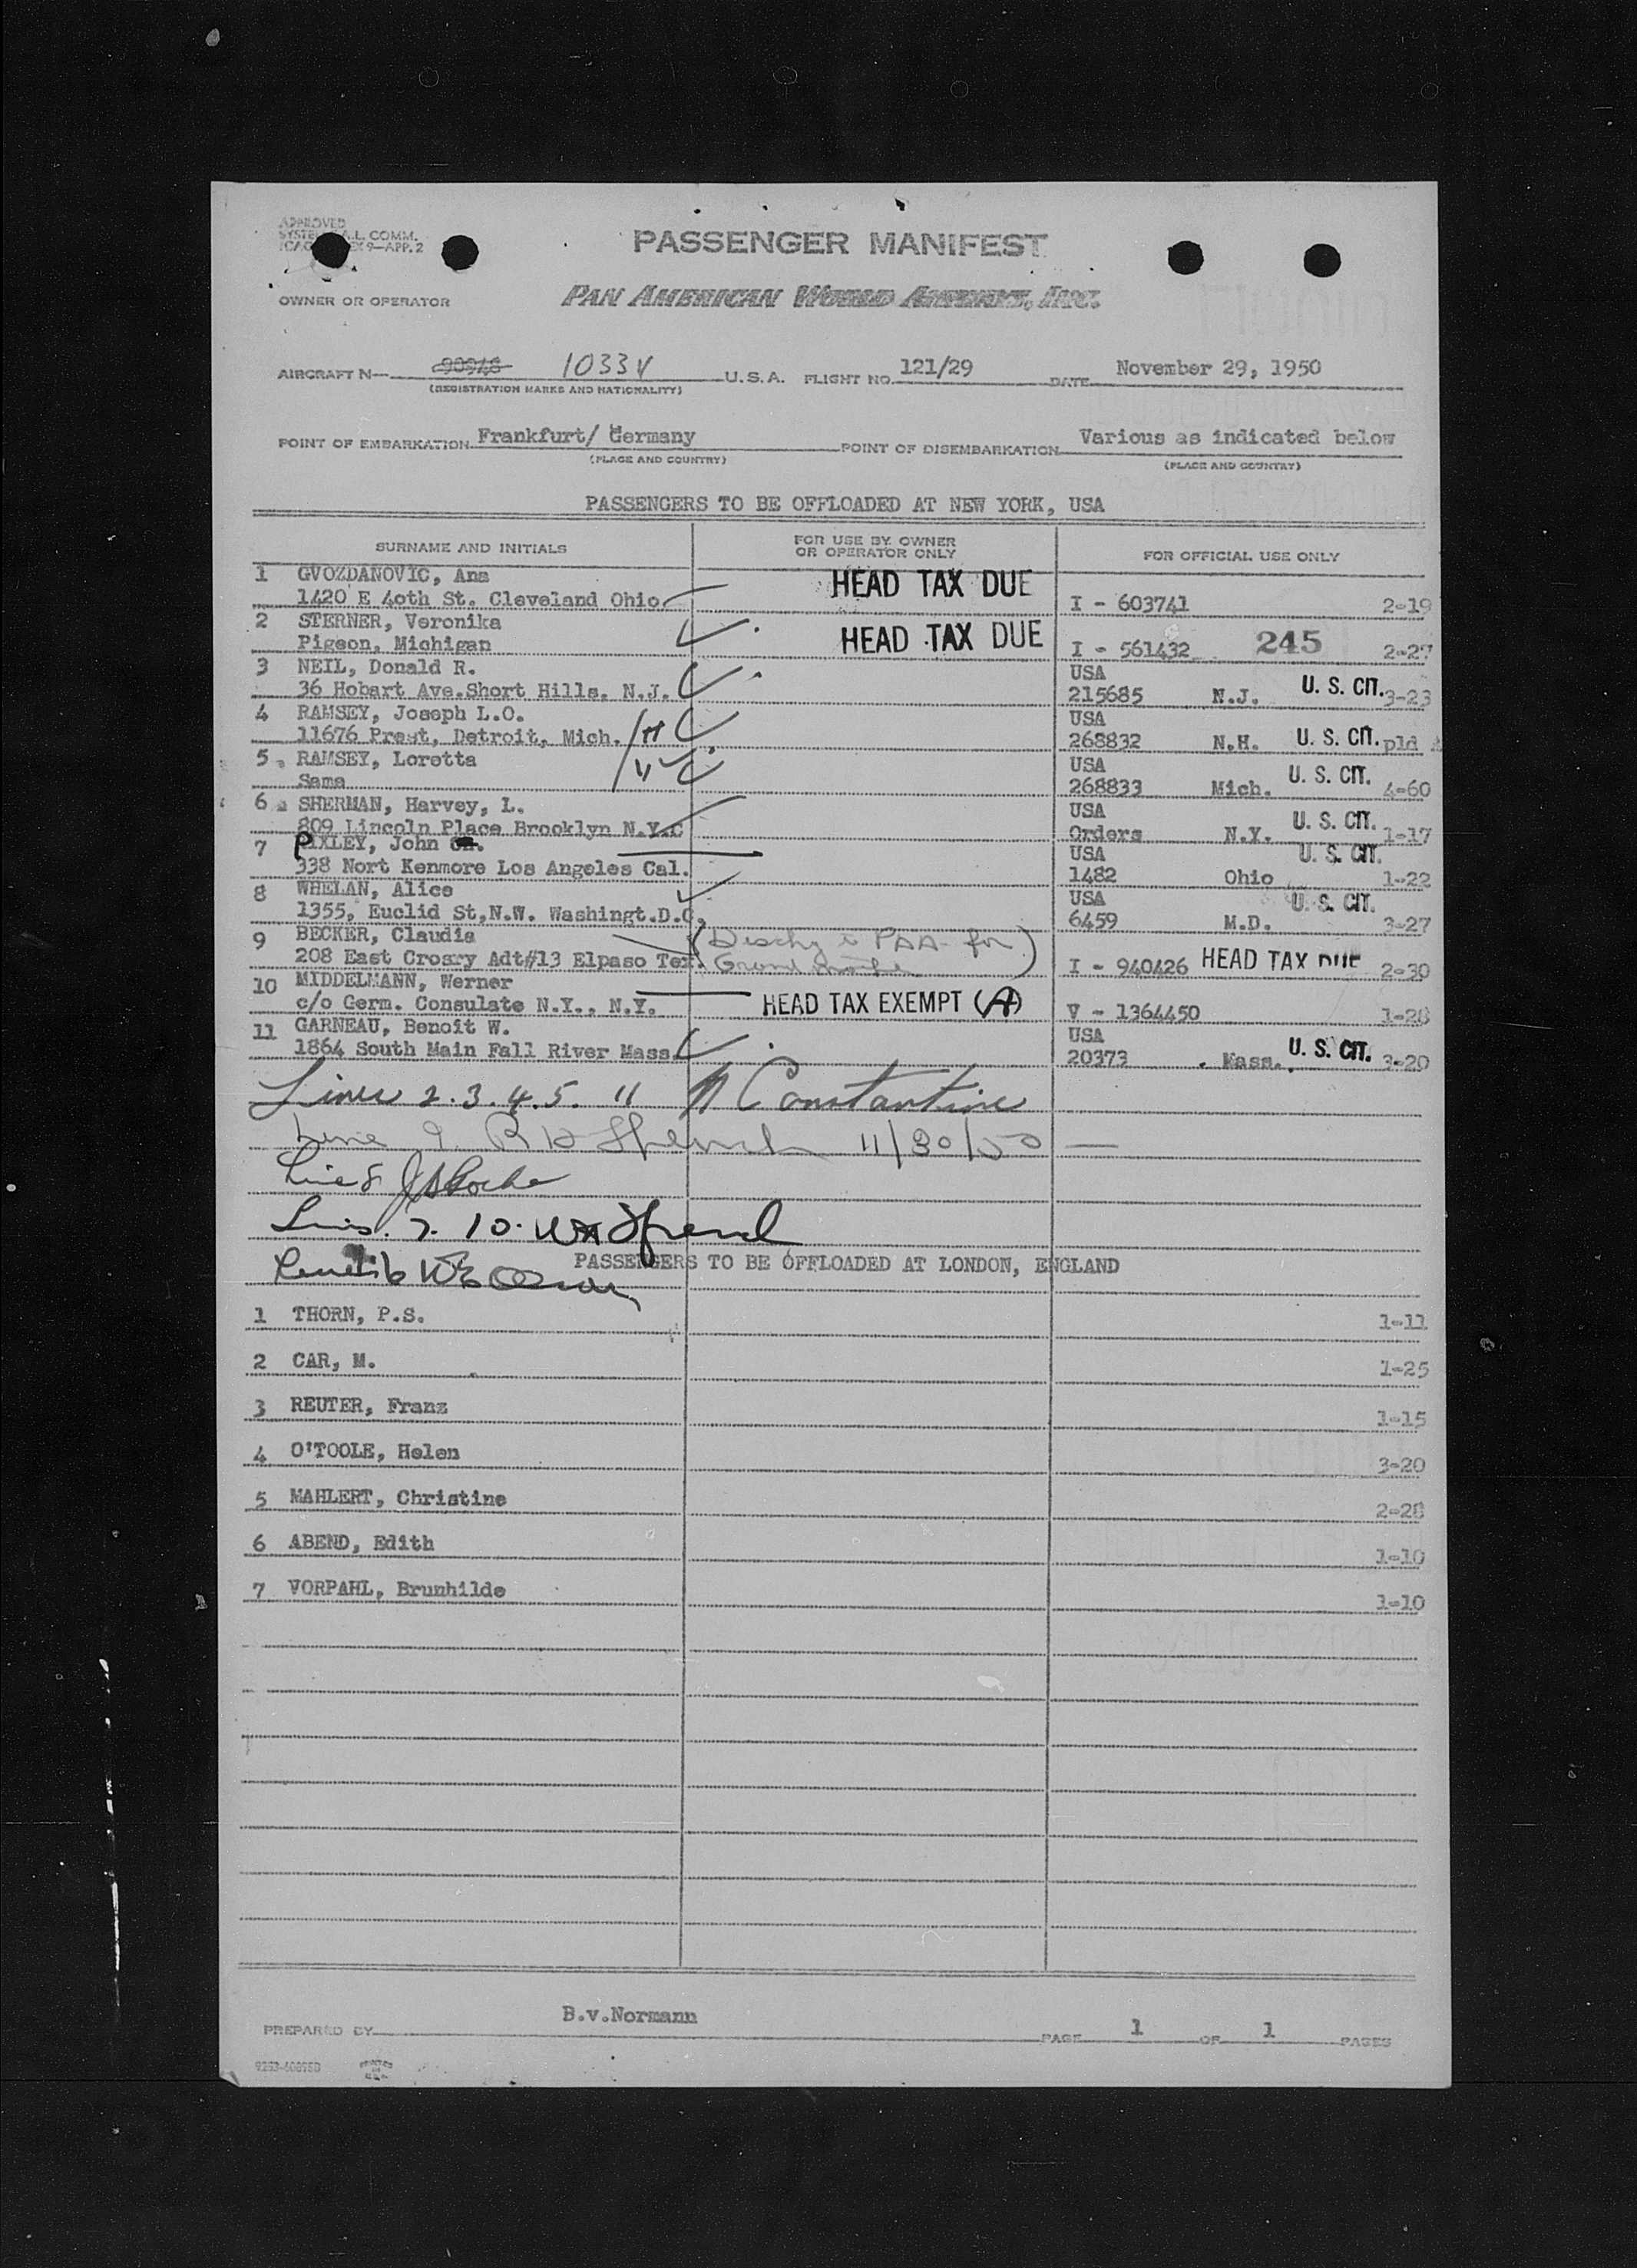 APPROVED
A.L. COMM.
9—APP. 2
PASSENGER MANIFEST
OWNER OR OPERATOR PAN AMERICAN WORLD AIRWAYS, INC.
AIRCRAFT N— 90948 1033V U.S.A. FLIGHT NO. 121/29 DATE November 29, 1950
(REGISTRATION MARKS AND NATIONALITY)
POINT OF EMBARKATION Frankfurt/ Germany POINT OF DISEMBARKATION Various as indicated below
(PLACE AND COUNTRY) (PLACE AND COUNTRY)
PASSENGERS TO BE OFFLOADED AT NEW YORK, USA
SURNAME AND INITIALS FOR USE BY OWNER OR OPERATOR ONLY FOR OFFICIAL USE ONLY
1 GVOZDANOVIC, Ana HEAD TAX DUE
1420 E 4oth St. Cleveland Ohio I - 603741 2-19
2 STERNER, Veronika HEAD TAX DUE
Pigeon, Michigan I - 561432 245 2-27
3 NEIL, Donald R. USA
36 Hobart Ave.Short Hills, N.J. 215685 N.J. U. S. CIT. 3-23
4 RAMSEY, Joseph L.O. USA
11676 Prest, Detroit, Mich. 268832 N.H. U. S. CIT. pld
5 RAMSEY, Loretta USA
Same 268833 Mich. U. S. CIT. 4-60
6 SHERMAN, Harvey, L. USA
809 Lincoln Place Brooklyn N.Y.C Orders N.Y. U. S. CIT. 1-17
7 PIXLEY, John USA U. S. CIT.
338 Nort Kenmore Los Angeles Cal. 1482 Ohio 1-22
8 WHELAN, Alice USA U. S. CIT.
1355, Euclid St,N.W. Washingt.D.C. 6459 M.D. 3-27
9 BECKER, Claudia ( to PAA for
208 East Crosry Adt#13 Elpaso Tex. ) I - 940426 HEAD TAX DUE 2-30
10 MIDDELMANN, Werner
c/o Germ. Consulate N.Y., N.Y. HEAD TAX EXEMPT (A) V - 1364450 1-28
11 GARNEAU, Benoit W. USA
1864 South Main Fall River Mass. 20373 Mass. U. S. CIT. 3-20
Lines 2.3.4.5. 11 Constantine
Line 9 11/30/50
Line 8
Lines 7. 10.
PASSENGERS TO BE OFFLOADED AT LONDON, ENGLAND
1 THORN, P.S. 1-11
2 CAR, M. 1-25
3 REUTER, Franz 1-15
4 O'TOOLE, Helen 3-20
5 MAHLERT, Christine 2-28
6 ABEND, Edith 1-10
7 VORPAHL, Brunhilde 1-10
PREPARED BY B.v.Normann PAGE 1 OF 1 PAGES